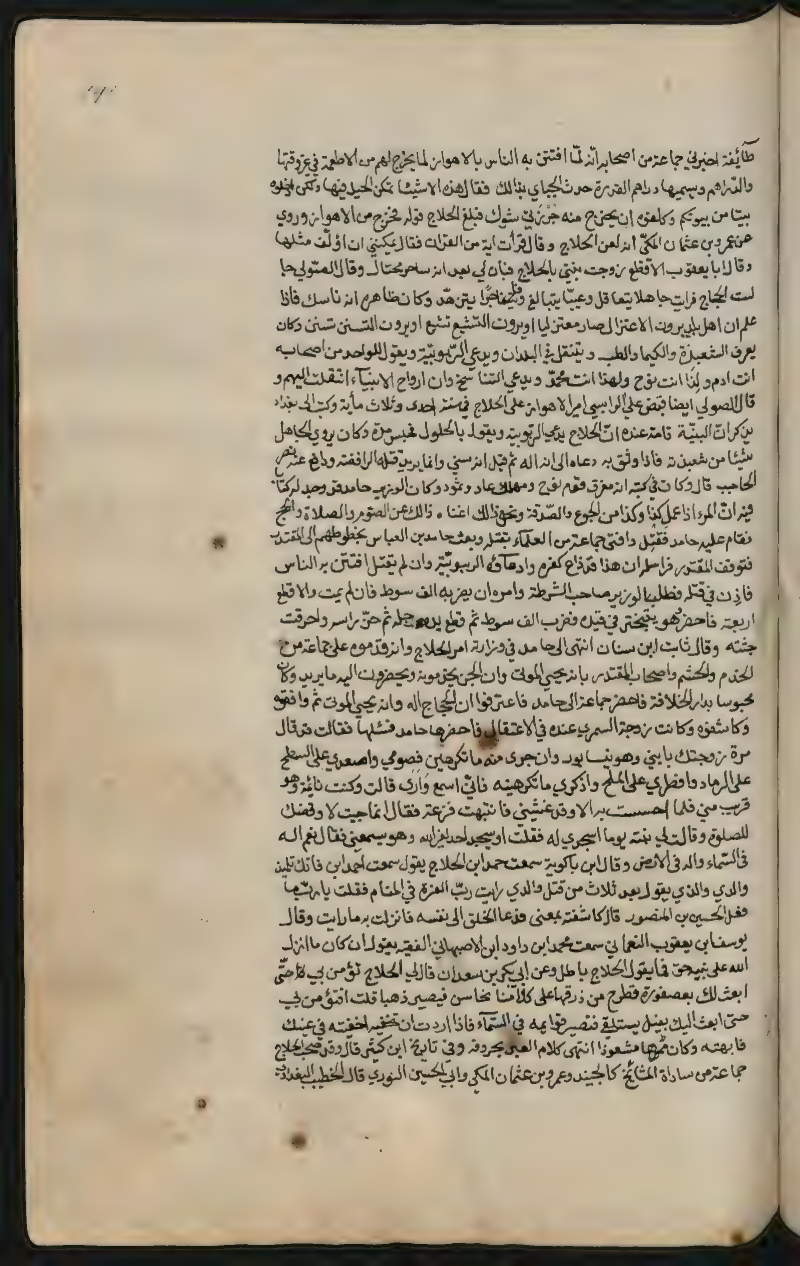 طائفة اخبرني جماعة من اصحابه انه لما افتتن به الناس بالاهواز لما يخرج لهم من الاطعمة في غير وقتها
والدراهم وسميها دراهم القدرة حدث الجباي بذالك فقال هذه الاشيا تمكن الحيل فيها ولكن ادخلوه
بيتا من بيوتكم وكلفوه ان يخرج منه جرزتي شوك فبلغ الحلاج قوله فخرج من الاهواز وروي
عن عمرو بن عثمان المكي انه لعن الحلاج وقال قرأت اية من القران فقال يمكنني ان اؤلف مثلها
وقال ابا يعقوب الاقطع زوجت بنتي بالحلاج فبان لي بعد انه ساحر محتال وقال الصولي جا
لست الحلاج فرايت جاهلا يتعاقل وعييا يتبالغ وفاجرا يتزهد وكان ظاهره انه ناسك فاذا
علم ان اهل بلد يرون الاعتزال صار معتزليا او يرون التشيع تشيع او يرون التسنن تسنن وكان
يعرف الشعبذة والكيميا والطب وينتقل في البلدان ويدعي الربوبية ويقول للواحد من اصحابه
انت ادم ولذا انت نوح ولهذا انت محمد ويدعي التناسخ وان ارواح الانبياء انتقلت اليهم و
قال الصولي ايضا قبض علي الراسبي امير الاهواز على الحلاج في سنة احدى وثلاث مأية وكتب الى بغداد
يذكر ان البينة قامت عنده ان الحلاج يدعي الربوبية ويقول بالحلول فحبس مدة وكان يروي الجاهل
شيئا من شعبذته فاذا وثق به دعاه الى انه اله ثم قيل انه سني وانما يريد قتله الرافضة ودافع عنه نصر
الحاجب قال وكان في كتبه انه مغرق قوم نوح ومهلك عاد وثمود وكان الوزير حامد قد وجد له كتابا
فيه ان المرء اذا عمل كذا وكذا من الجوع والصدقة ونحو ذالك اغناه ذالك عن الصوم والصلاة والحج
فقام عليه حامد فقتل وافتى جماعة من العلماء بقتله وبعث حامد بن العباس بخطوطهم الى المقتدر
فتوقف المقتدر فراسله ان هذا قد ذاع كفره وادعاؤه الربوبية وان لم يقتل افتتن به الناس
فاذن في قتله فطلب الوزير صاحب الشرطة وامره ان يضربه الف سوط فان لم يمت والا قطع
اربعته فاحضر هو يتبختر في قيده فضرب الف سوط ثم قطع يده ورجله ثم حز راسه واحرقت
جثته وقال ثابت ابن سنان انتهى الى حامد في وزارته امر الحلاج وانه قد موه على جماعة من
الخدم والحشم واصحاب المقتدر بانه يحيي الموتى وان الجن يخدمونه ويحضرون اليه ما يريد وكان
محبوسا بدار الخلافة فاحضر جماعة الى حامد فاعترفوا ان الحلاج اله وانه يحيي الموتى ثم وافقوه
وكاشفوه وكانت زوجة السمري عنده في الاعتقال فاحضرها حامد فسئلها فقالت قد قال
مرة زوجتك بابني وهو بنيسابور وان جرى منه ما تكرهين فصومي واصعدي على السطح
على الرماد وافطري على الملح واذكري ما تكرهينه فاني اسمع وارى قالت وكنت نايمة وهو
قريب مني فلما احسست به الا وقد غشيني فانتبهت فزعة فقال انما جيت لاوقضك
للصلوة وقالت لي بنته يوما اسجدي له فقلت او يسجد احد لغير الله وهو يسمعني فقال نعم اله
في السماء واله في الارض وقال ابن باكوية سمعت حمد ابن الحلاج يقول سمعت احمد ابن فاتك تلميذ
والدي والذي يقول بعد ثلاث من قتل والدي رايت رب العزة في المنام فقلت يا رب ما
فعل الحسين بن المنصور قال كاشفته بمعنى فدعا الخلق الى نفسه فانزلت به ما رايت وقال
يوسف ابن يعقوب النعماني سمعت محمد ابن داود ابن الاصبهاني الفقيه يقول ان كان ما انزل
الله على نبيه حق فما يقول الحلاج باطل وعن ابي بكر بن سعدان قال لي الحلاج تؤمن بي حتى
ابعث لك بعصفورة فطرح من ذرقها على كذا منا نحاس فيصير ذهبا قلت افتؤمن بي
حتى ابعث اليك بفيل يستلقي فتصير قوايمه في السماء فاذا اردت ان تخفيه اخفيته في عينك
فابهته وكان مموها مشعوذا انتهى كلام العبر بحروفه وفي تاريخ ابن كثير قال وقد صحب الحلاج
جماعة من سادات المشائخ كالجنيد وعمرو بن عثمان المكي وابي الحسين النوري قال الخطيب البغدادي